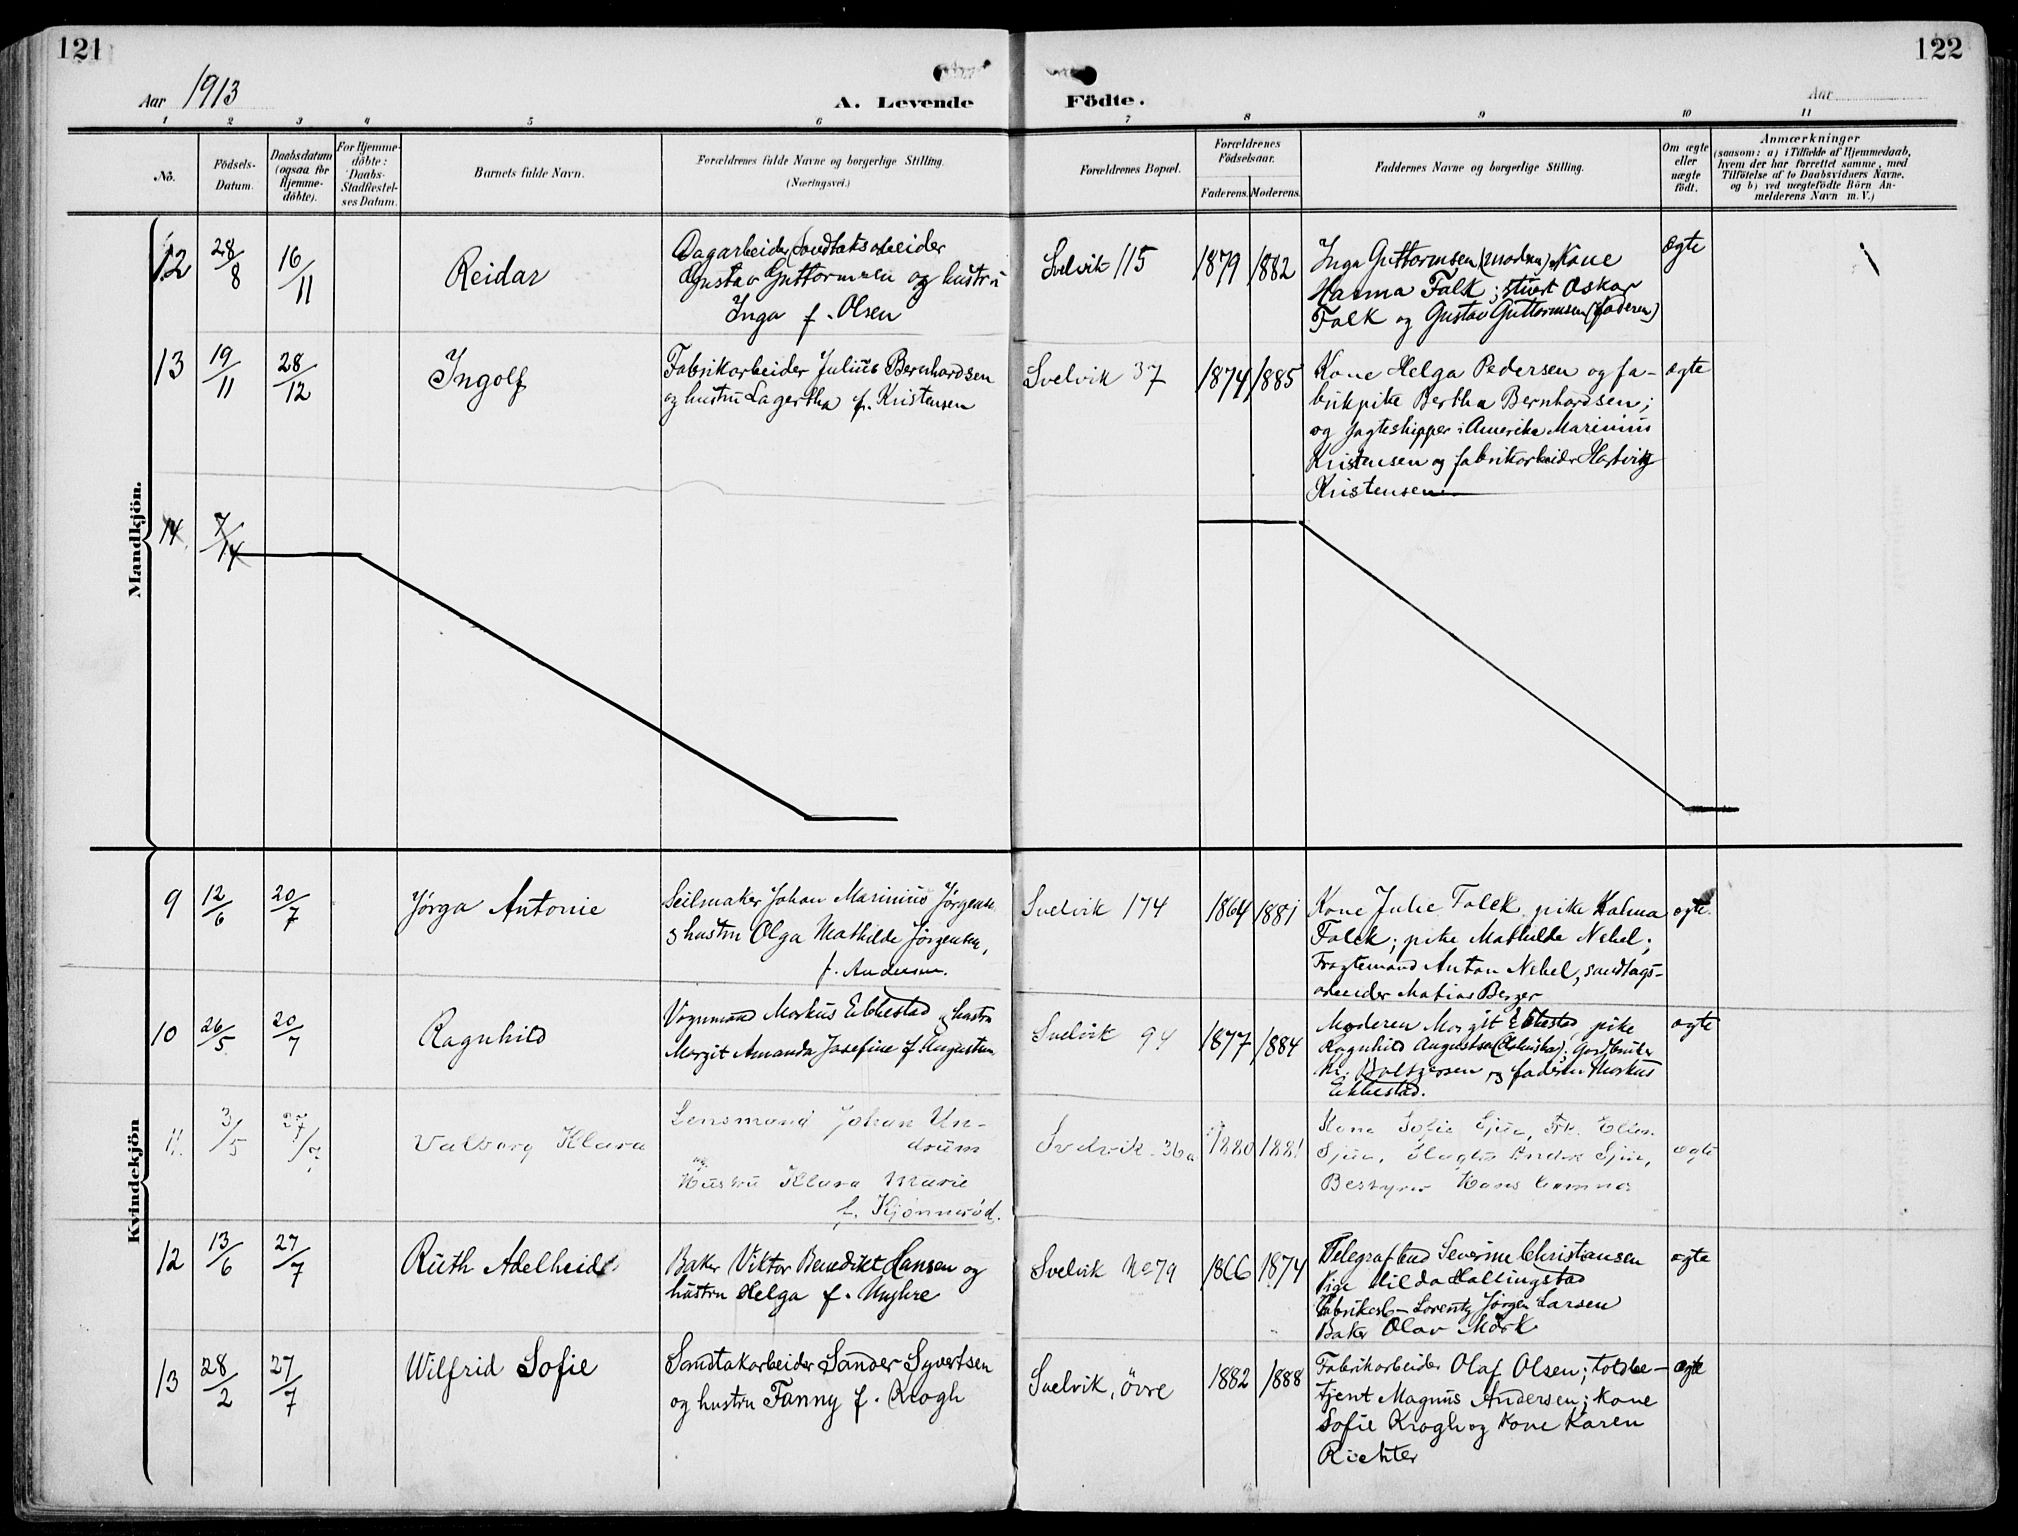 121
122
Aar 1913
A. Levende Födte.
Aar
1 2 3 4 5 6 7 8 9 10 11
Nö.
Födsels-
Datum.
Daabsdatum
(ogsaa for
Hjemme-
döbte).
For Hjemme-
döbte:
Daabs-
Stadfestel-
ses Datum.
Barnets fulde Navn.
Forældrenes fulde Navne og borgerlige Stilling.
(Næringsvei.)
Forældrenes Bopæl.
Forældrenes
Födselsaar.
Faderens. Moderens.
Faddernes Navne og borgerlige Stilling.
Om ægte
eller
uægte
födt.
Anmærkninger
(saasom: a) i Tilfælde af Hjemmedaab,
hvem der har forrettet samme, med
Tilföielse af to Daabsvidners Navne.
og b) ved uægtefödte Börn An-
melderens Navn m. V.)
Mandkjön.
12
28/8
16/11
Reidar
Dagarbeider
Gustav Guttormsen og hustru
Inga f. Olsen
Svelvik 115
1879
1882
Inga Guttormsen (moderen), Kone
Hanna Falk; stuert Oskar
Falk og Gustav Guttormsen (faderen)
ægte
13
19/11
28/12
Ingolf
Fabrikarbeider Julius Bernhardsen
og hustru Lagertha f. Kristensen
Svelvik 37
1874
1885
Kone Helga Pedersen og fa-
brikpike Bertha Bernhardsen;
og jagteskipper i Amerika Marinius
Kristensen og fabrikarbeider Hartvig
Kristensen
ægte
14
7/14
Kvindekjön
9
12/6
20/7
Jørga Antonie
Seilmaker Johan Marinius Jørgensen
& hustru Olga Mathilde Jørgensen,
f. Andersen.
Svelvik 174
1864
1881
Kone Julie Falck, pike Halma
Falck; pike Mathilde Nebel;
Fragtemand Anton Nebel, sandtags-
arbeider Matias Berger
ægte
10
26/5
20/7
Ragnhild
Vognmand Markus Ebbestad og hustru
Margit Amanda Josefine f. Augustsen
Svelvik 94
1877
1884
Moderen Margit Ebbestad, pike
Ragnhild Augustsen; Gardbruker
og faderen Markus
Ebbestad.
ægte
11.
3/5
27/7
Valborg Klara
Lensmand Johan Un-
drum
og
Hustru Klara Marie
f. Kjønnerød.
Svelvik 36a
1880
1881
Kone Sofie Gjøe, Frk. Ellen
Gjøe,
Bestyrer Hans
ægte
12
13/6
27/7
Ruth Adelheid
Baker Viktor Benedikt Hansen og
hustru Helga f. Unghre
Svelvik No 79
1866
1874
Telegrafbud Severine Christansen
Pige Hilda Hallingstad
Fabrikarb- Lorentz Jørgen Larsen
Baker Olav Mörk
ægte
13
28/2
27/7
Wilfrid Sofie
Sandtakarbeider Sander Syvertsen
og hustru Fanny f. Krogh
Svelvik, övre
1882
1888
Fabrikarbeider Olaf Olsen; toldbe-
tjent Magnus Andersen; kone
Sofie Krogh og kone Karen
Richter
ægte